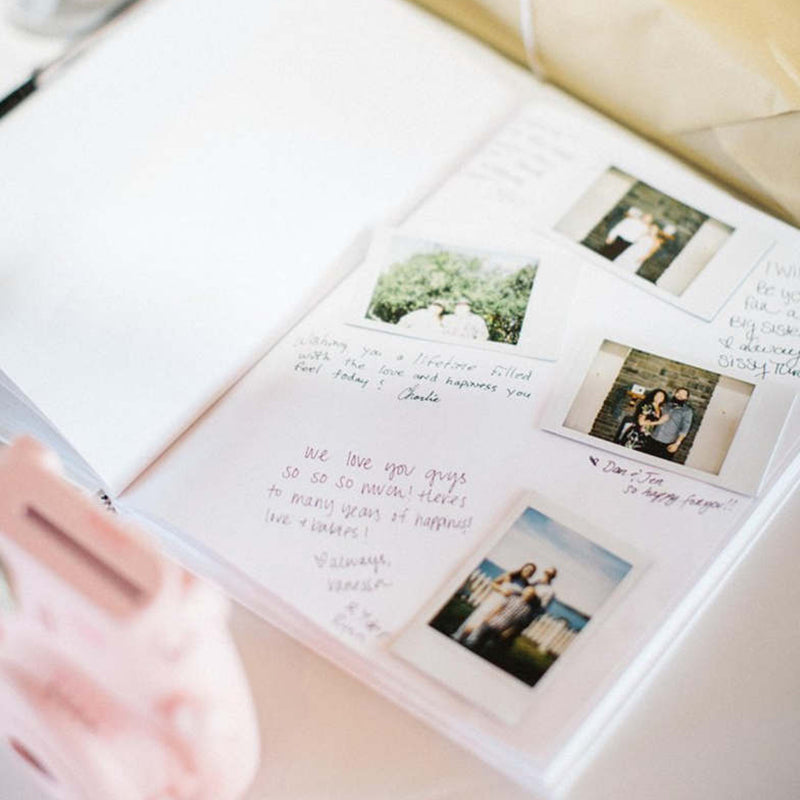 Wishing you a lifetime filled
with the love and happiness you
feel today! Charlie
I will
Be yo
far a
Big sister
always
sissy
Dan & Jen
so happy for you!!
we love you guys
so so so much! Heres
to many years of happiness!
love + babies!
always,
vanessa